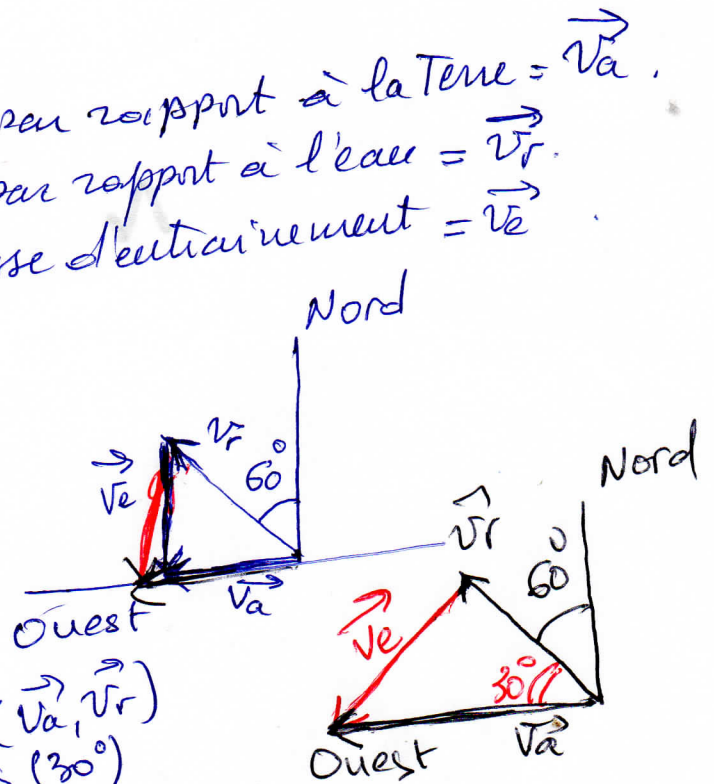 par rapport à la Terre = Va.
par rapport à l'eau = Vr.
se d'entrainement = Ve
Nord
Vr
60°
Ve
Va
Ouest
Nord
Vr
60°
Ve
30°
Va
Ouest
(Va, Vr)
(30°)